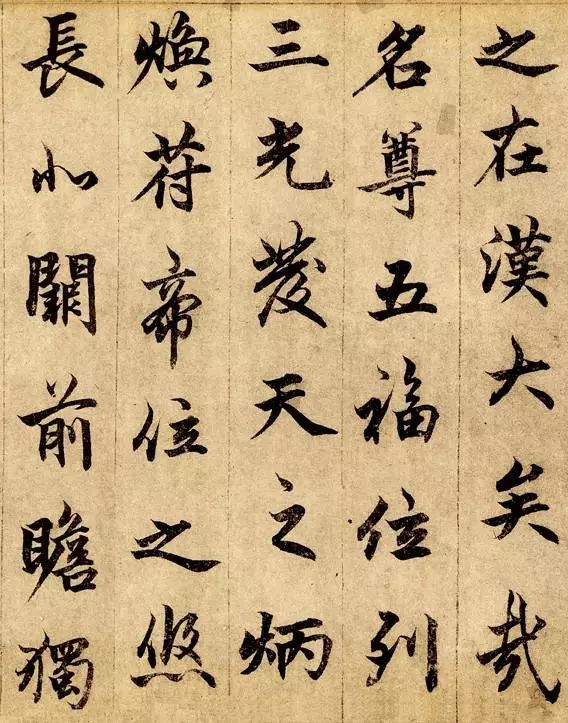 之在漢大矣哉
名尊五福位列
三光發天之炳
煥符帝位之悠
長北闕前瞻獨